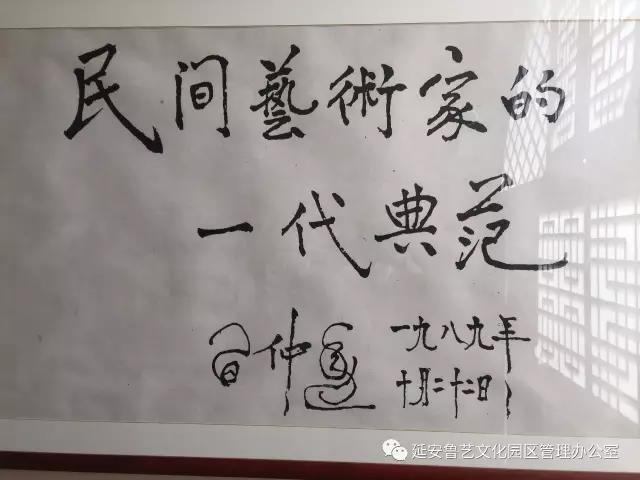 民间藝術家的
一代典范
仲
一九八九年
十月二十二日
延安鲁艺文化园区管理办公室